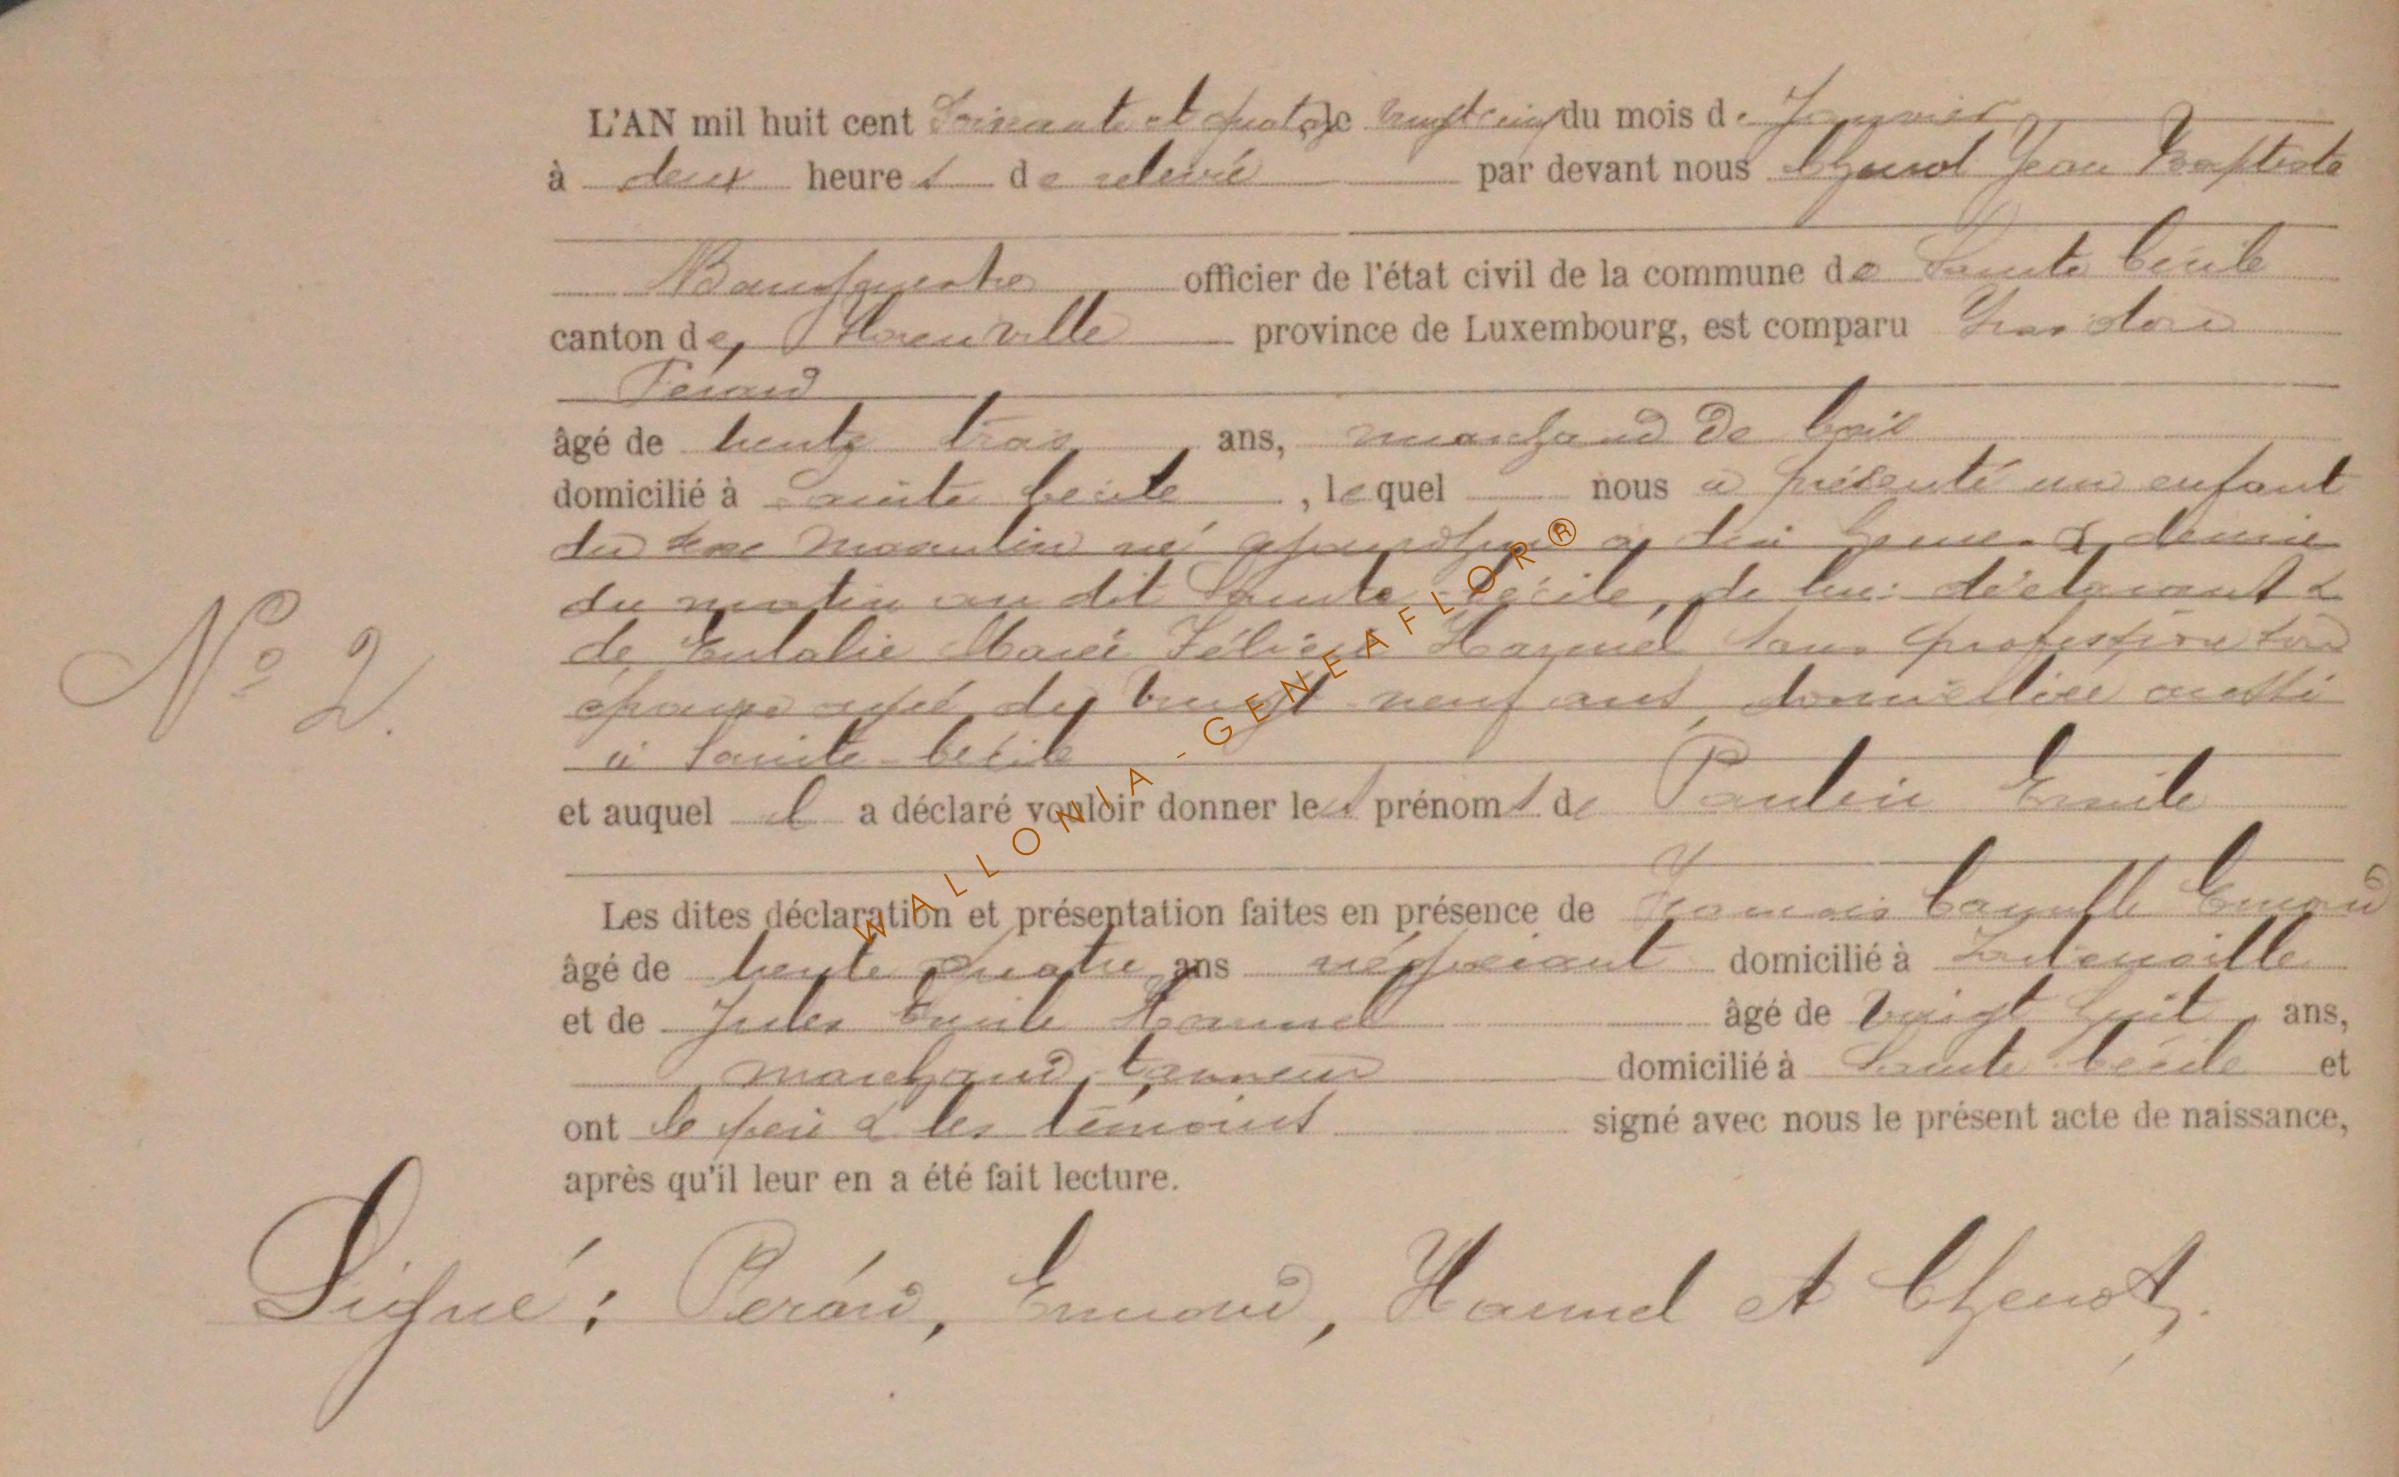 L'AN mil huit cent Soixante et quatorze le vingt cinq du mois de Janvier
à deux heures de relevé par devant nous Chenot Jean Baptiste
Bourgmestre officier de l'état civil de la commune de Sainte Cécile
canton de Florenville province de Luxembourg, est comparu
Pérard
âgé de trente trois ans, marchand de bois
domicilié à Sainte Cécile, lequel nous a présenté un enfant
du sexe masculin né aujourd'hui à dix heures & demie
du matin au dit Sainte-Cécile, de lui déclarant &
de Eulalie Marie Hannel sans profession son
épouse agé de vingt neuf ans, domiciliée aussi
à Sainte-Cécile
No 2.
et auquel il a déclaré vouloir donner les prénoms de Paulin Emile
Les dites déclaration et présentation faites en présence de François Camille Emond
âgé de trente quatre ans négociant domicilié à Fontenoille
et de Jules Emile Hannel âgé de vingt huit ans,
marchand tanneur domicilié à Sainte Cécile et
ont le père & les témoins signé avec nous le présent acte de naissance,
après qu'il leur en a été fait lecture.
Signé : Pérard, Emond, Hannel et Chenot.
WALLONIA - GENEAFLOR®